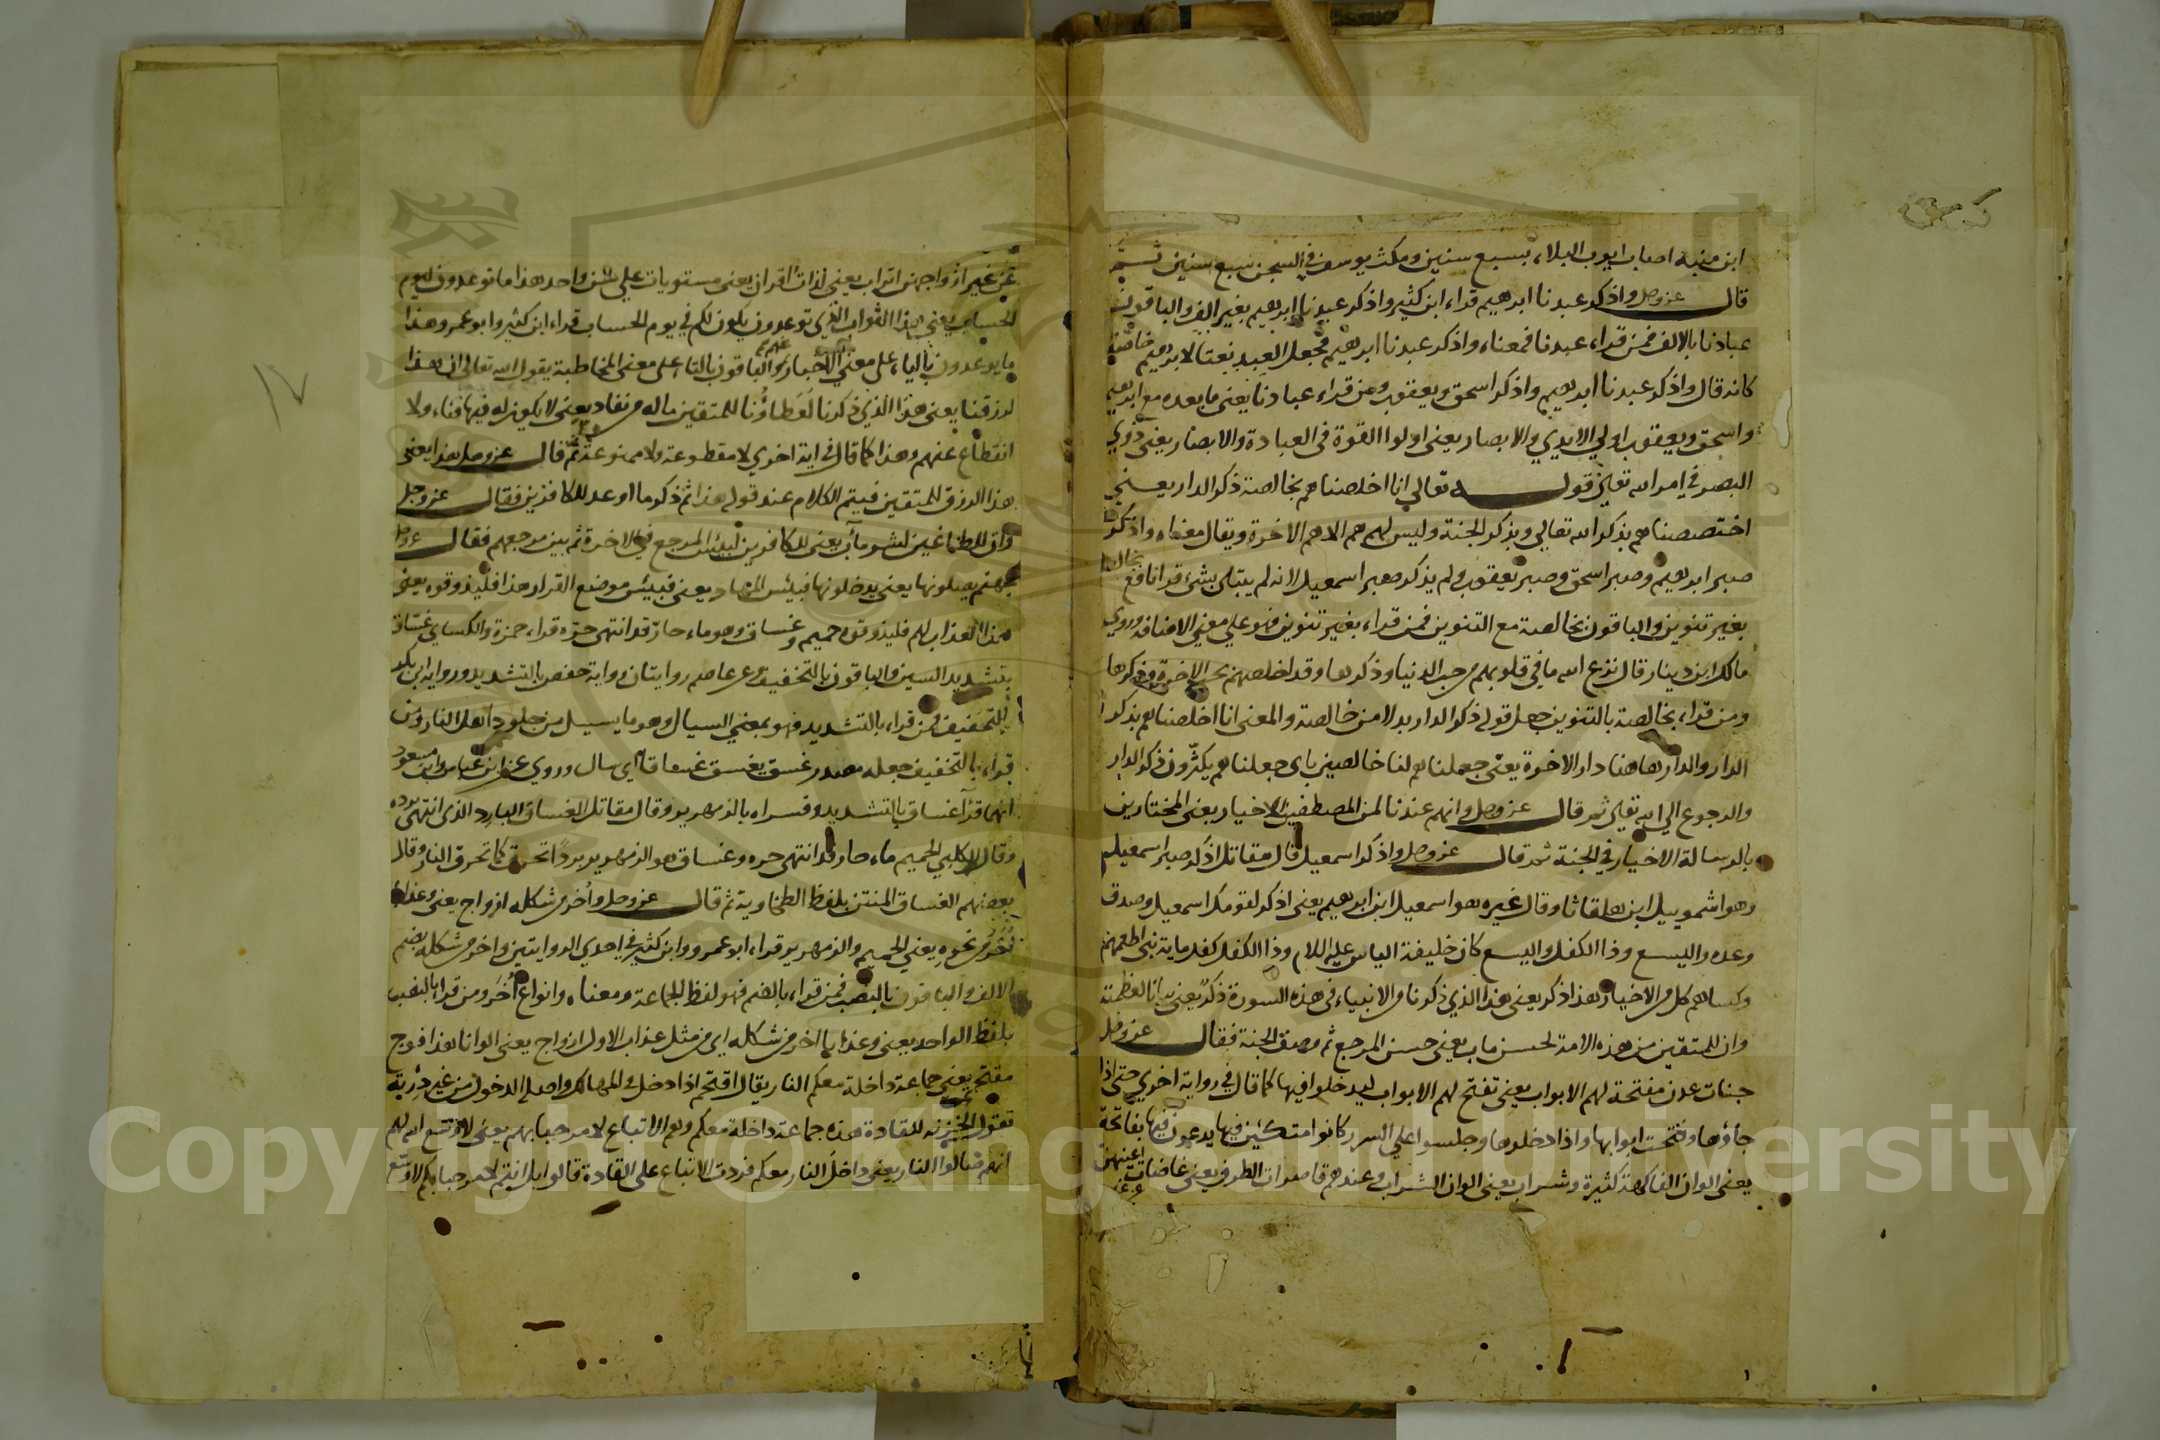 ابن منبه اصاب ايوب البلاء بسبع سنين ومكث يوسف في السجن سبع سنين ثم
قال عز وجل واذكر عبدنا ابرهيم قراء ابن كثير واذكر عبدنا ابرهيم بغير الف والباقون
عبادنا بالالف فمن قراء عبدنا فمعناه واذكر عبدنا ابرهيم فجعل العبد نعتا لابرهيم خاصة
كانه قال واذكر عبدنا ابرهيم واذكر اسحق ويعقوب ومن قراء عبادنا يعنى ما بعده مع ابرهيم
واسحق ويعقوب اولي الايدي والابصار يعنى اولوا القوة فى العبادة والابصار يعنى ذوي
البصر في امر الله تعالى قوله تعالي انا اخلصناهم بخالصة ذكر الدار يعني
اختصصناهم بذكر الله تعالي وبذكر الجنة وليس لهم هم الا هم الاخرة ويقال معناه واذكر
صبر ابرهيم وصبر اسحق وصبر يعقوب ولم يذكر صبر اسمعيل لانه لم يبتل بشئ قرا نافع بخالصة
بغير تنوين والباقون بخالصة مع التنوين فمن قراء بغير تنوين فهو علي معني الاضافة وروي
مالك ابن دينار قال نزع الله ما في قلوبهم من حب الدنيا وذكرها وقد اخلصهم بحب الاخرة وذكرها
ومن قراء بخالصة بالتنوين جعل قوله ذكر الدار بدلا من خالصة والمعنى انا اخلصناهم بذكر
الدار والدار هاهنا دار الاخرة يعنى جعلناهم لنا خالصين باى جعلناهم يكثرون ذكر الدار
والرجوع الي الله تعالى ثم قال عز وجل وانهم عندنا لمن المصطفين الاخيار يعنى المختارين
بالرسالة الاخيار في الجنة ثم قال عز وجل واذكر اسمعيل قال مقاتل اذكر صبر اسمعيل
وهو اشمويل ابن هلقاثا وقال غيره هو اسمعيل ابن ابرهيم يعنى اذكر لقومك اسمعيل وصدق
وعده واليسع وذا الكفل واليسع كان خليفة الياس عليه السلام وذا الكفل كفل ماية نبى اطعمهم
وكساهم كل من الاخيار هذا ذكر يعنى هذا الذي ذكرنا من الانبياء فى هذه السورة ذكر يعنى بيانا لعظمته
وان للمتقين من هذه الامة لحسن ماب يعنى حسن المرجع ثم وصف الجنة فقال عز وجل
جنات عدن مفتحة لهم الابواب يعنى تفتح لهم الابواب ليدخلوا فيها كما قال في رواية اخري حتى اذا
جاؤها وفتحت ابوابها واذا دخلوها وجلسوا علي السرر كانوا متكئين فيها يدعون فيها بفاكهة
يعنى الوان الفاكهة كثيرة وشراب يعنى الوان الشراب وعندهم قاصرات الطرف يعنى غاضات اعينهن
عن غير ازواجهن اتراب يعنى لذات اقران يعنى مستويات علي سن واحد هذا ما توعدون ليوم
الحساب يعني هذا الثواب الذي توعدون يكون لكم في يوم الحساب قراء ابن كثير وابو عمرو هذا
ما يوعدون بالياء على معنى الاخبار عنهم والباقون بالتاء على معنى المخاطبة يقول الله تعالى ان هذا
لرزقنا يعنى هذا الذي ذكرنا لعطاؤنا للمتقين ماله من نفاد يعنى لا يكون له فيها فناء ولا
انقطاع عنهم وهذا كما قال في اية اخري لا مقطوعة ولا ممنوعة ثم قال عز وجل هذا يعنى
هذا الرزق للمتقين فيتم الكلام عند قوله هذا ثم ذكر ما اوعد للكافرين فقال عز وجل
وان للطاغين لشر مآب يعنى للكافرين لبئس المرجع في الاخرة ثم بين مرجعهم فقال عز وجل
جهنم يصلونها يعنى يدخلونها فبئس المهاد يعنى فبيئس موضع القرار هذا فليذوقوه يعنى
هذا العذاب لهم فليذوقوه حميم وغساق وهو ماء حار قد انتهى حره قراء حمزة والكسايى غساق
بتشديد السين والباقون بالتخفيف وعن عاصم روايتان رواية حفص بالتشديد ورواية ابى بكر
بالتخفيف فمن قراء بالتشديد فهو بمعنى السيال وهو ما يسيل من جلود اهل النار ومن
قراء بالتخفيف جعله مصدر غسق يغسق غساقا اى سال وروي عن ابن عباس وابن مسعود
انهما قرآ غساق بالتشديد وفسراه بالزمهرير وقال مقاتل الغساق البارد الذى انتهى برده
وقال الكلبي الحميم ماء حار قد انتهى حره وغساق هو الزمهرير بردا تحرق كما تحرق النار وقال
بعضهم الغساق المنتن بلفظ الطخاوية ثم قال عز وجل وآخر من شكله ازواج يعنى وعذاب
آخر من نحوه يعنى الحميم والزمهرير قراء ابو عمرو وابن كثير في احدي الروايتين واخر من شكله بضم
الالف والباقون بالنصب فمن قراء بالضم فهو لفظ الجماعة ومعناه وانواع أخر ومن قراء بالنصب
بلفظ الواحد يعنى وعذابا اخر من شكله اى من مثل عذاب الاول ازواج يعنى الوانا هذا فوج
مقتحم يعنى جماعة داخلة معكم النار يقال اقتحم اذا دخل في المهالك واصله الدخول من غير رؤية
تقول الخزنة للقادة هذه جماعة داخلة معكم وهم الاتباع لا مرحبا بهم يعنى لا وسع الله لهم
انهم صالوا النار يعنى داخل النار معكم فردت الاتباع على القادة قالوا بل انتم لا مرحبا بكم لا وسع
Copyright © King Saud University